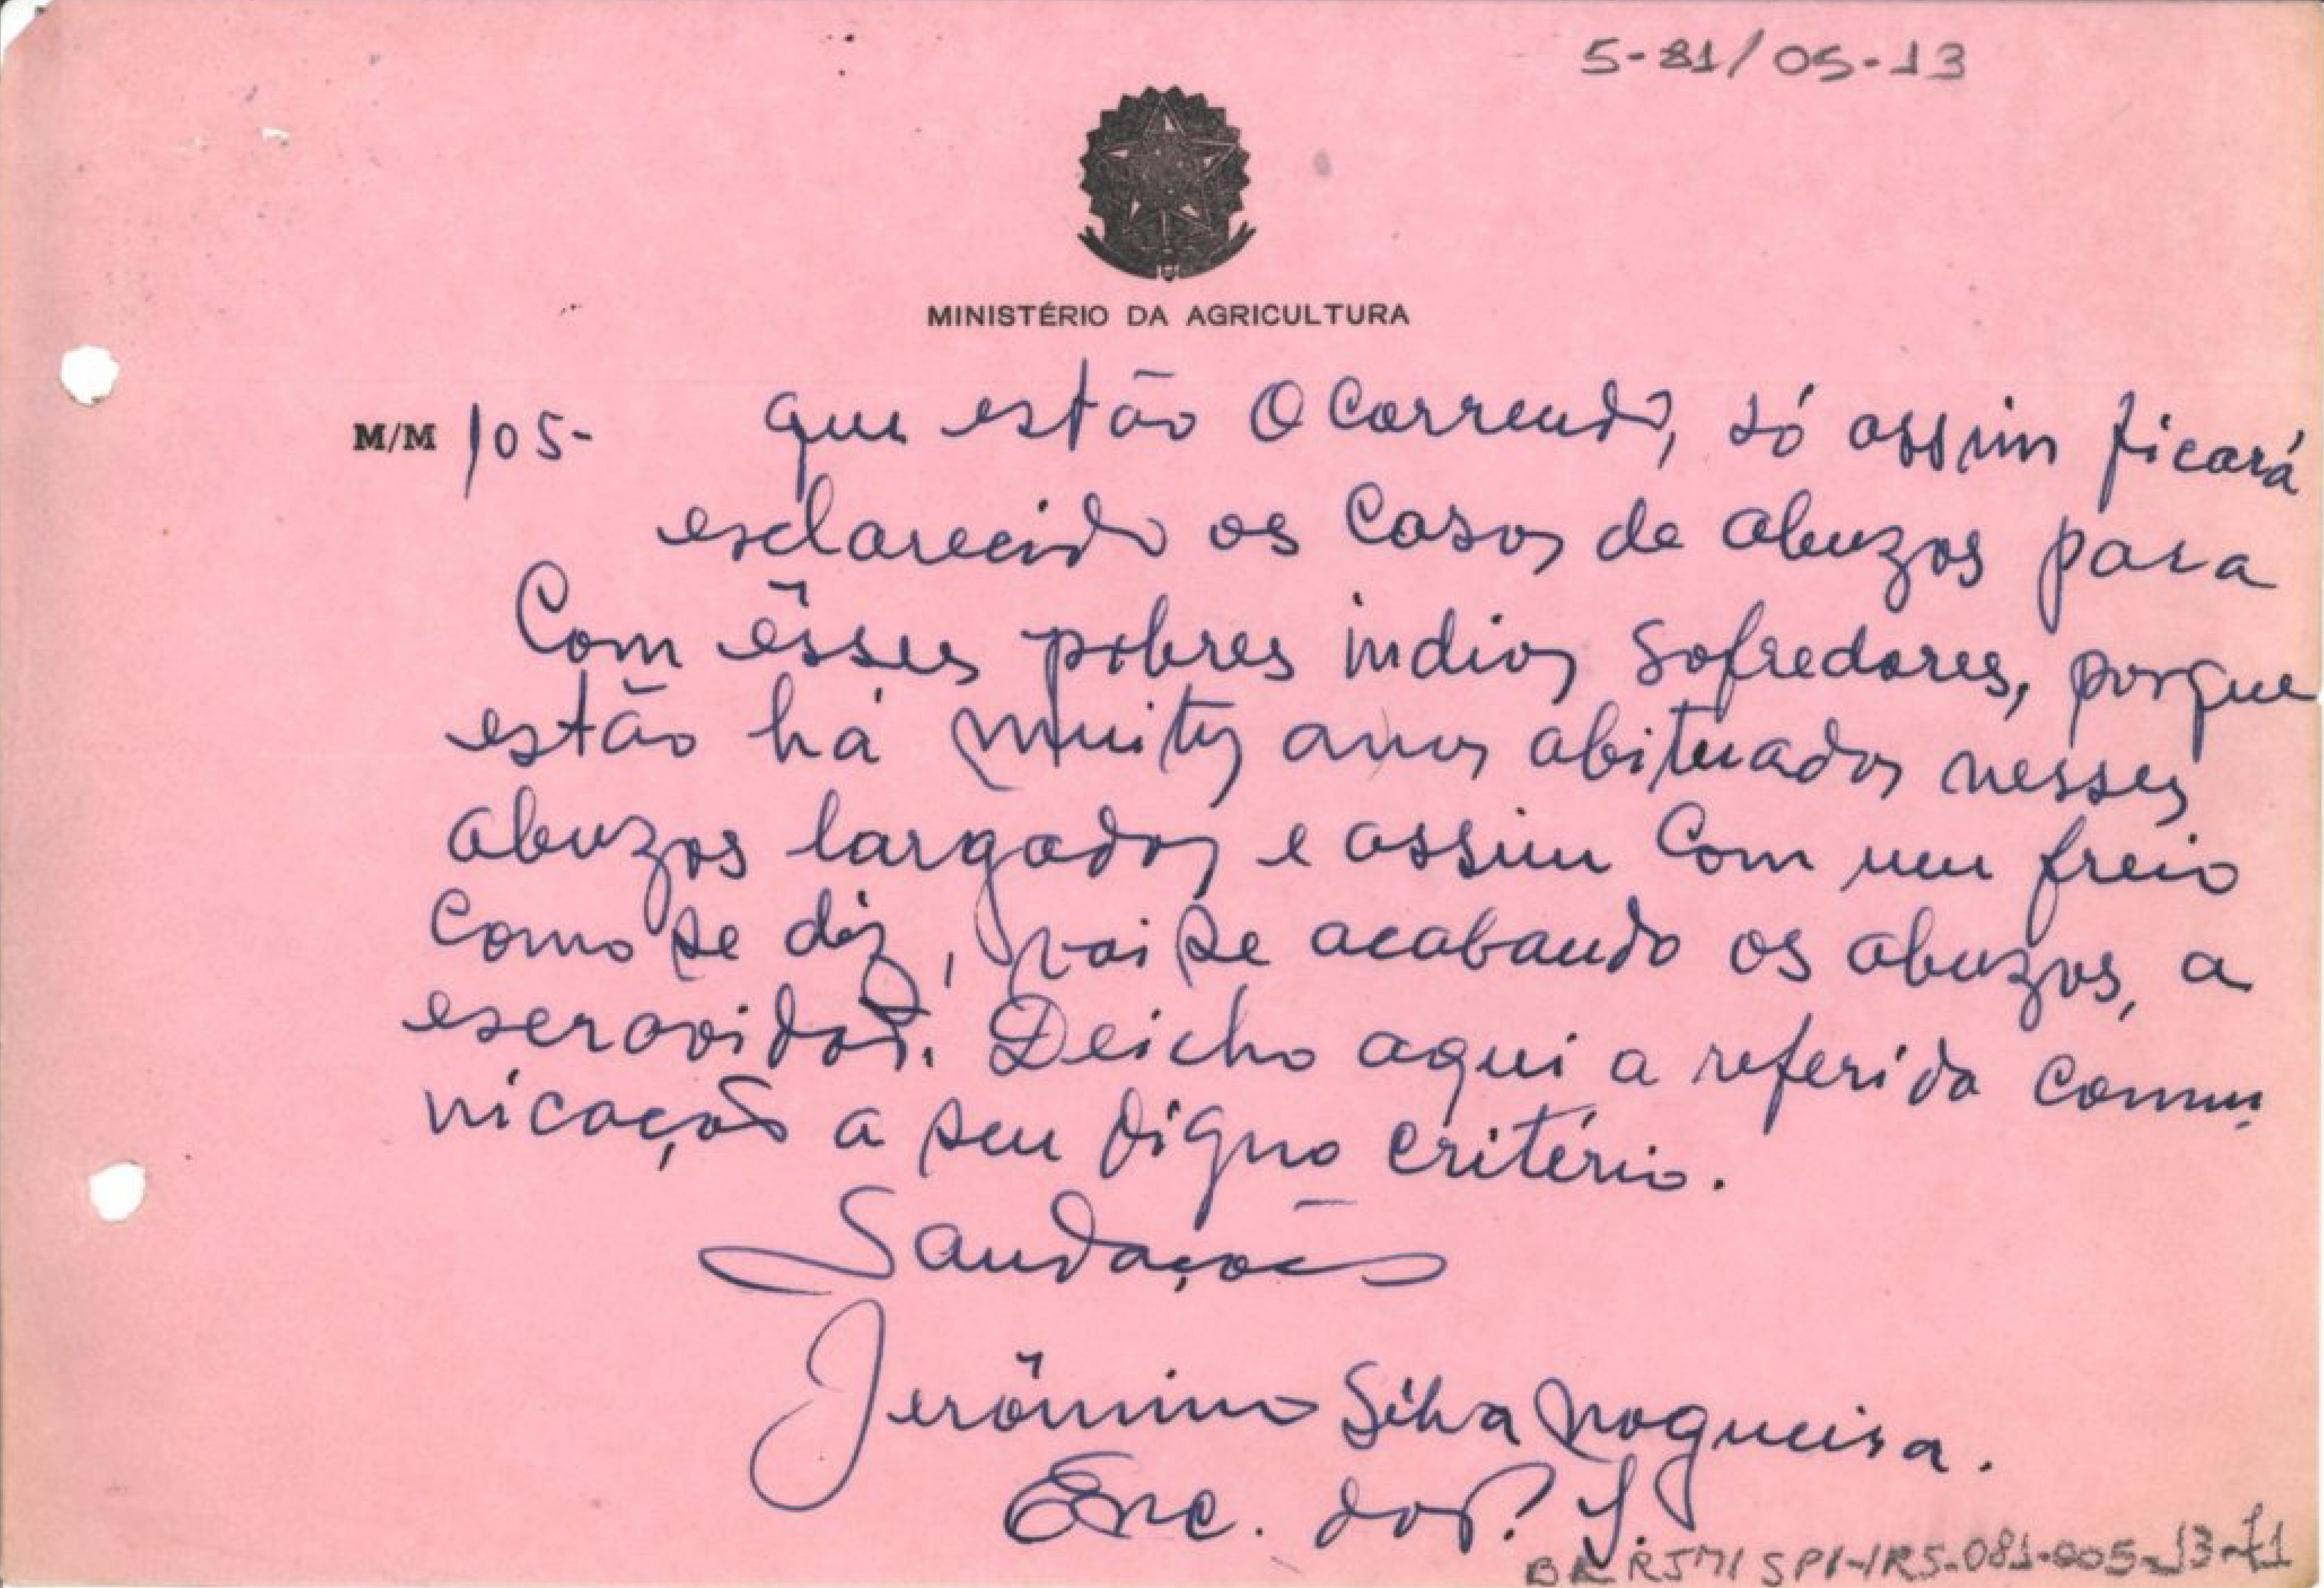 5-81/05-13
MINISTÉRIO DA AGRICULTURA
M/M /05- que estão Ocorrendo, só assim ficará
esclarecido os Casos de abuzos para
Com êsses pobres indios Sofredores, porque
estão há muitos anos abituados nesses
abuzos largados e assim Com um freio
Como se diz, vai se acabando os abuzos, a
escravidão. Deicho aqui a referida Comu
nicação a seu digno Critério.
Saudações
Jerônimo Silva Nogueira.
Enc. do P. I.
BR RJMI SPI-IR5-081-005-13-f1